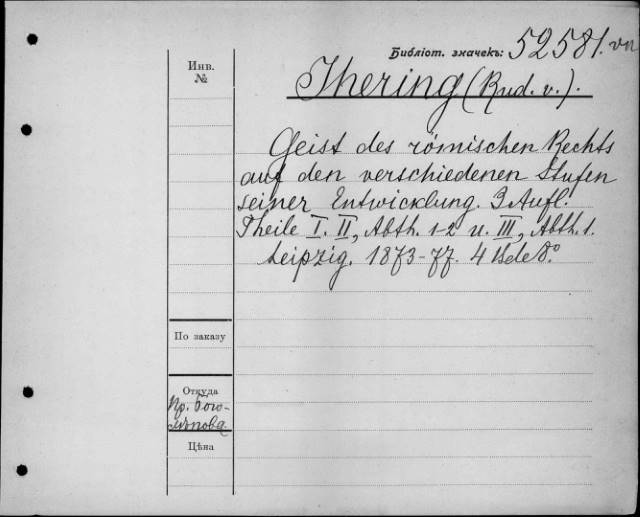 Библіот. значекъ: 52581. vn
Инв.
№
Jhering (Rud. v.).
Geist des römischen Rechts
auf den verschiedenen Stufen
seiner Entwicklung. 3 Aufl.
Theile I. II, Abth. 1-2 u. III, Abth. 1.
Leipzig. 1873-77. 4 Bde 8.°
По заказу
Откуда
Пр. Бого-
лѣпова
Цѣна